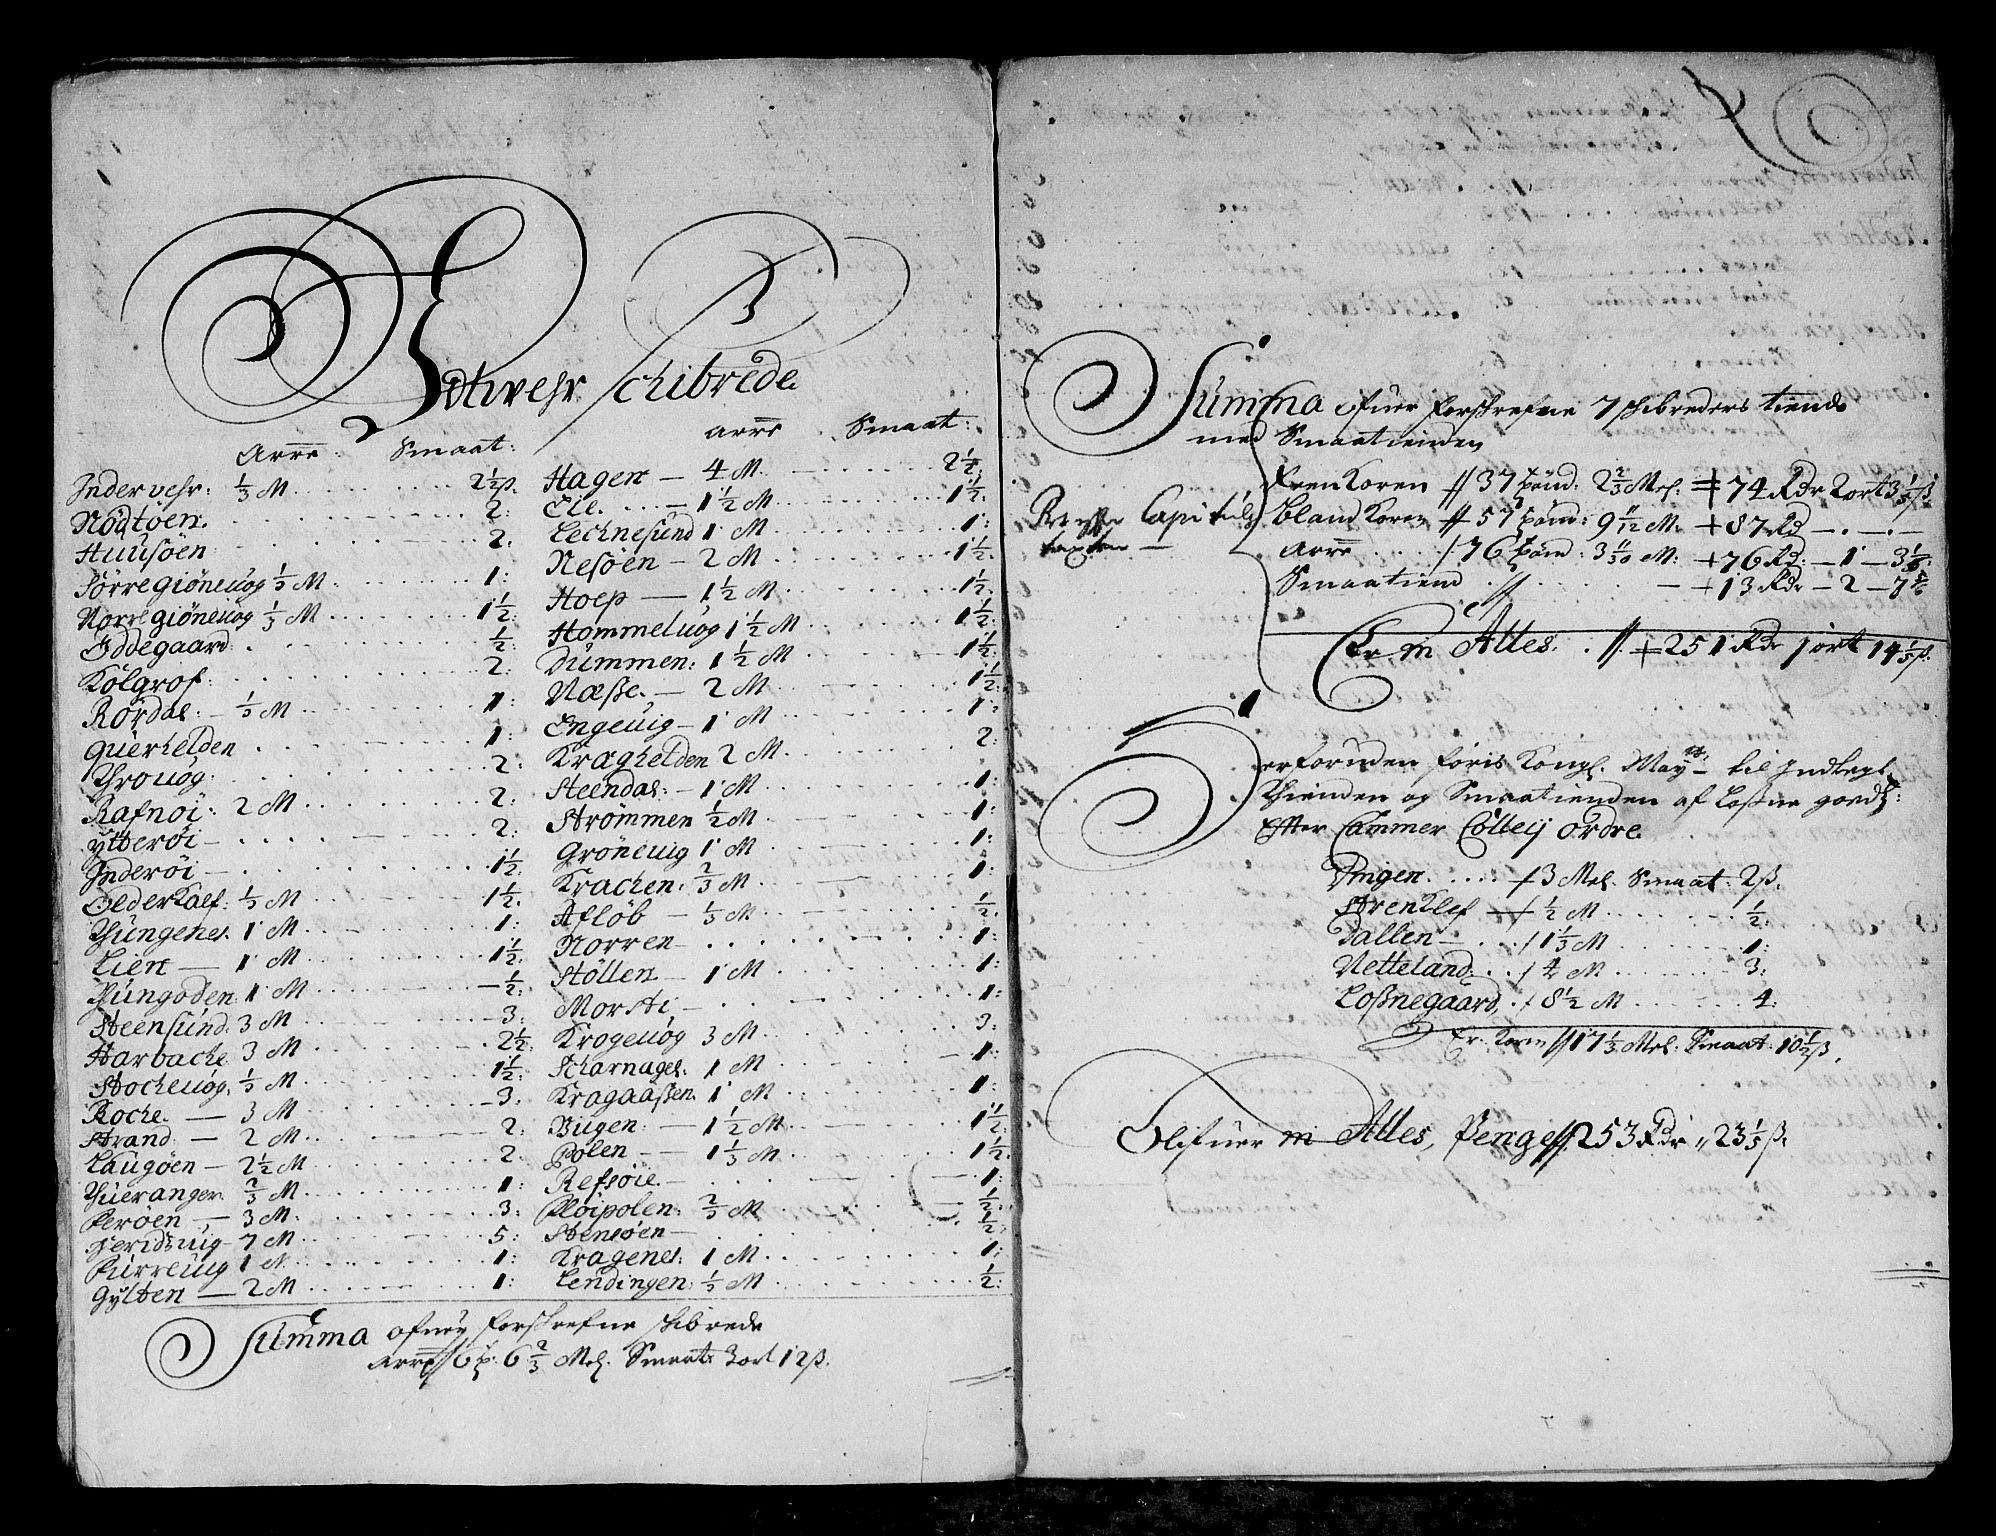 Udtvehr Schibrede
Arre: Smaat:
Indervehr: 1/3 M 2 1/2 ß.
Nödtöen. 2:
Huusöen 2:
Sörregiöneuog 1/3 M 1:
Norregiöneuog 1/3 M 1 1/2:
Öddegaard 1/2:
Kolgrof: 2:
Rördal: 1/3 M 1:
Querhelden 1:
Throuog: 2:
Rafnöi: 2 M 2:
Ytterøi 2:
Inderøi 1 1/2:
Olderkalf: 1/3 M 1 1/2:
Thungenes. 1 M 1:
Lien 1 M 1 1/2:
Thungoden: 1 M 1/2:
Steensund: 3 M 3:
Harbache 3 M 2 1/2:
Stocheuog. 1/3 M 1 1/2:
Roche. 3 M 3:
Strand: 2 M 2:
Laugöen 2 1/2 M 2:
Thueranger. 2/3 M 1:
Peröen 3 M 3:
Feridzuig 7 M 5:
Purreuig 1 M 1:
Gylten 2 M 1:
Arre Smaat:
Hagen 4 M. 2 1/2:
Eie. 1 1/2 M 1 1/2:
Lechnesund 1 M 1:
Nesöen 2 M 1 1/2:
Hoep 1 1/2 M 1 1/2:
Hommeluog 1 1/2 M 1 1/2:
Dummen: 1 1/2 M 1 1/2:
Næsse. 2 M 1 1/2:
Engeuig 1 M 1:
Kraghelden 2 M. 2:
Steendal: 1 M 1:
Strömmen 1/2 M 1:
Gröneuig 1 M 1:
Krachen. 2/3 M 1:
Aflöb 1/3 M 1/2:
Norren 1:
Stöllen 1 M 1:
Morsti 1:
Krogeuog 3 M 3:
Scharnagel. 1 M 1:
Kragaassen. 1 M 1:
Bugen: 1 1/2 M 1 1/2:
Polen 1 1/3 M 1 1/2:
Refsöie. 1:
Pløipolen: 2/3 M 1/2:
Stensöen 1/2:
Kragenes: 1 M 1:
Lendingen: 1/3 M 1/2:
Summa ofuen forskrefne schibrede
Arre 6 p: 6 2/3 Mel. Smaat: 3 ort 12 ß.
Summa ofuer forskrefne 7 schibreders tiende
med Smaatienden
Reen Koren 37 pund: 2 2/3 Mel. 74 Rdr 2 ort 3 1/5 ß
Bland Koren 57 pund: 9 11/12 M. 87 Rd
Arre 76 pund: 3 11/30 M: 76 Rd: 1 3 1/5:
Smaatiend 13 Rdr 2 7
Capituls
taxten
Er in Alles. 251 Rdr 1 ort 14 1/5 ß.
Derforuden föris Kongl. Maytt. til Indtegt
Thienden og Smaatienden af Lossne goedz:
Efter Cammer Collegij ordre
Dingen 3 Mel. Smaat: 2 ß.
Strenklef 1/2 M 1/2:
Dallen 1 1/3 M 1:
Netteland: 4 M 3:
Lossnegaard 8 1/2 M 4:
Er Korn 17 1/3 Mel. Smaat: 10 1/2 ß.
Blifuer in Alles, Penge 253 Rdr 23 1/5 ß.